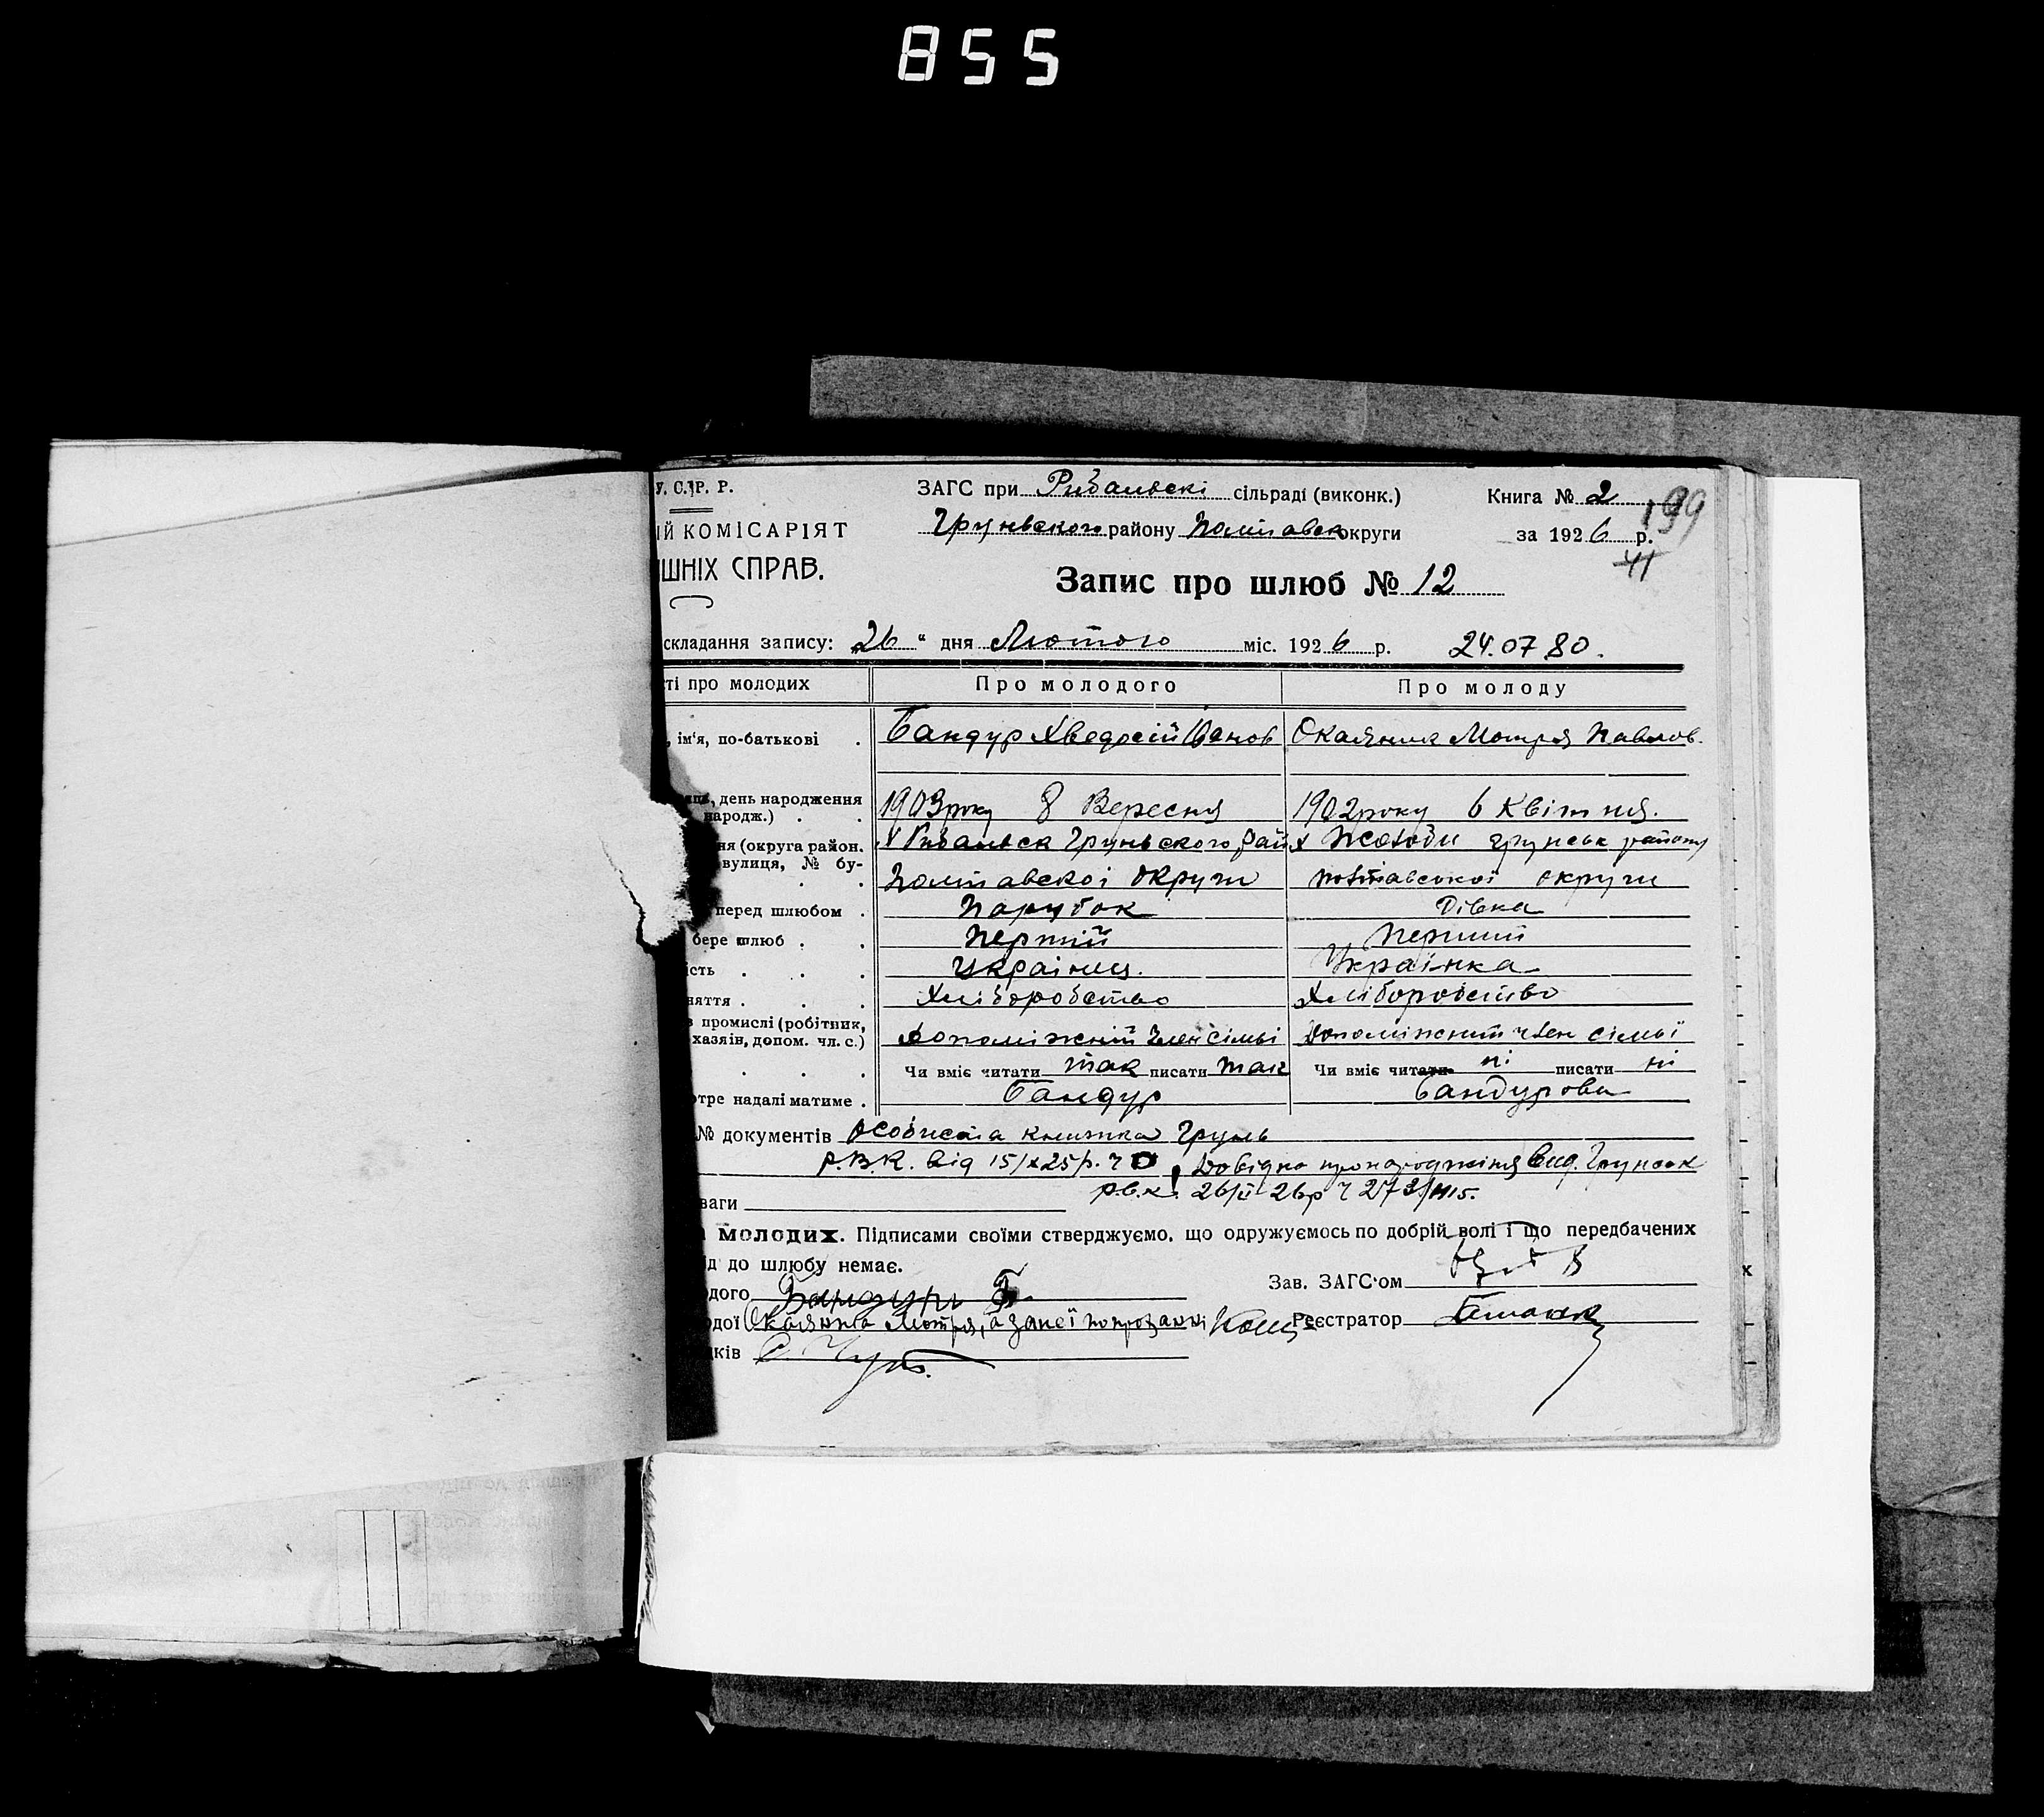 855
У. С. Р. Р.
ЗАГС при Рибальскі сільраді (виконк.)
Книга № 2
199
ІЙ КОМІСАРІЯТ
Груньского району Полтавськ округи
за 1926 р.
41
ШНІХ СПРАВ.
Запис про шлюб № 12
складання запису: 26 " дня Лютого міс. 1926 р. 24.07.80.
ті про молодих
Про молодого
Про молоду
, ім'я, по-батькові .
Бандур Хведосій Іванов
Мотря Павлов.
, день народження
народж.) . .
1903 року 8 Вересня
1902 року 6 Квітня.
ня (округа район.
вулиця, № бу-
х Рибальск Груньского рай
х грунськ району
Полтавскоі округи
полтавської округи
перед шлюбом .
Парубок
Дівка
бере шлюб . .
Перший
Перший
ість . . .
Украінец.
Украінка
няття . . .
Хліборобство
Хліборобство
в промислі (робітник,
хазяїв, допом. чл. с.)
Допоміжний член сімьі
Допоміжний член сімьї
Чи вміє читати так писати так
Чи вміє читати ні писати ні
тре надалі матиме .
Бандур
Бандурова
№ документів Особиста книжка Грунь
Р.В.К. від 15/х 25 р. Довідка про народження вид. Грунськ
р.в.к. 26/ІІ-26р Ч 273/
ваги
молодих. Підписами своїми стверджуємо, що одружуємось по добрій волі і що передбачених
д до шлюбу немає.
Зав. ЗАГС'ом
дого Бандурь
дої Мотря, а за неї
Реєстратор
ків